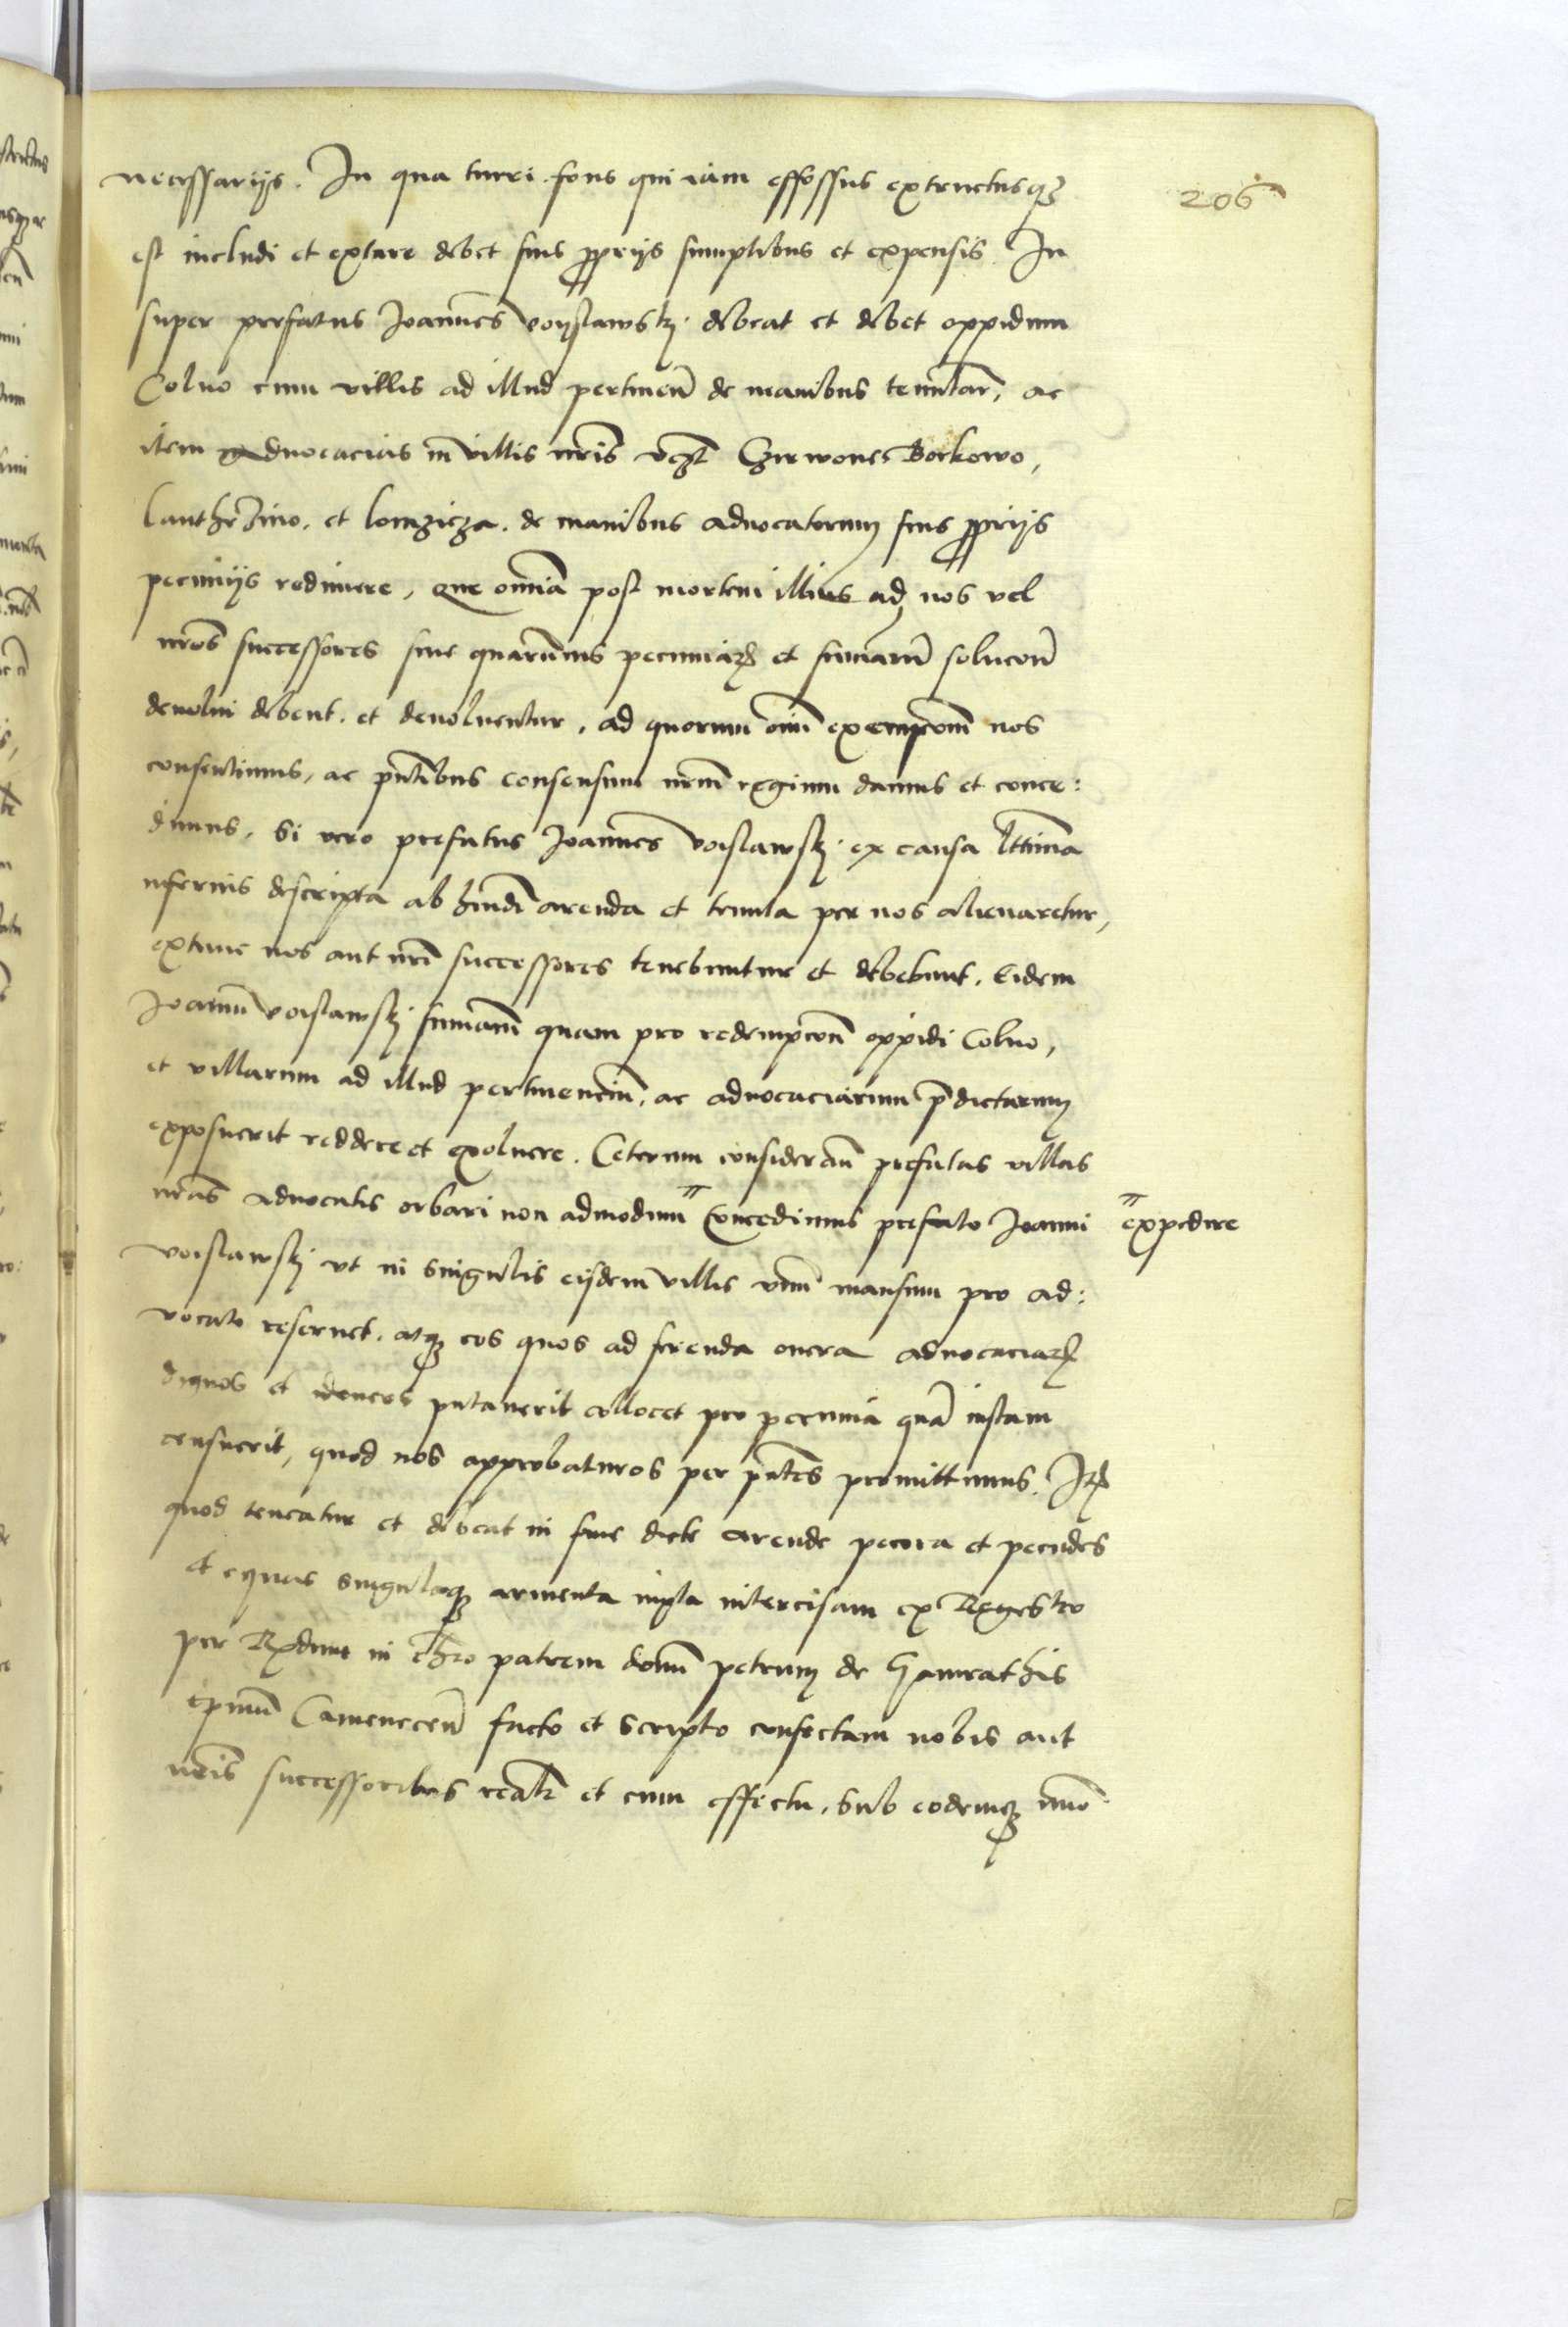 206
necessarijs. In qua turri fons qui iam effossus extructusq3
est includi et extare debet suis proprijs sumptibus et expensis. In
super prefatus Joannes voyslawskj debeat et debet oppidum
Colno cum villis ad illud pertinen̄ de manibus tenutar̄, ac
item advocacias in villis nr̄is vcz̄t Czirwone, Borkowo,
lanthczino, et lomzicza. de manibus advocatorum suis proprijs
pecunijs redimere, que omnia post mortem illius ad nos vel
nr̄os successores sine quarumvis pecuniarꝝ et summarū solucoñ
devolvi debent. et devolventur, ad quorum oīm exempcōm nos
consentimus, ac pn̄tibus consensum nr̄m regium damus et conce:
dimus, Si vero prefatus Joannes voislawskj ex causa l̄ttima
inferius descripta ab hmōi arenda et tenuta per nos alienaretur,
extunc nos aut nr̄i successores tenebuntur et debebunt. Eidem
Joanni voislawskj summam quam pro redempcoñ oppidi Colno,
et villarum ad illud pertinenciū, ac advocaciarum p̄dictarum
exposuerit reddere et exolvere. Ceterum consideran̄ prefatas villas
nr̄as advocatis orbari non admodum " Concedimus prefato Joanni " expedire
voislawskj vt in singulis eisdem villis vnū mansum pro ad:
vocato reservet. atq3 eos quos ad ferenda onera advocaciarꝝ
dignos et idoneos putaverit collocet pro pecunia quā iustam
censuerit, quod nos approbaturos per pn̄tes promittimus. Itꝝ
quod teneatur et debeat in fine dicte arende pecora et pecudes
et equas singulaq3 armenta iuxta intercisam ex Regestro
per Rx̄dum in chr̄o patrem domū petrum de Gamrathis
ep̄mū Camenecen̄ facto et scripto confectam nobis aut
nr̄is successoribus realr̄ et cum effectu. Sub eodemq3 nūo